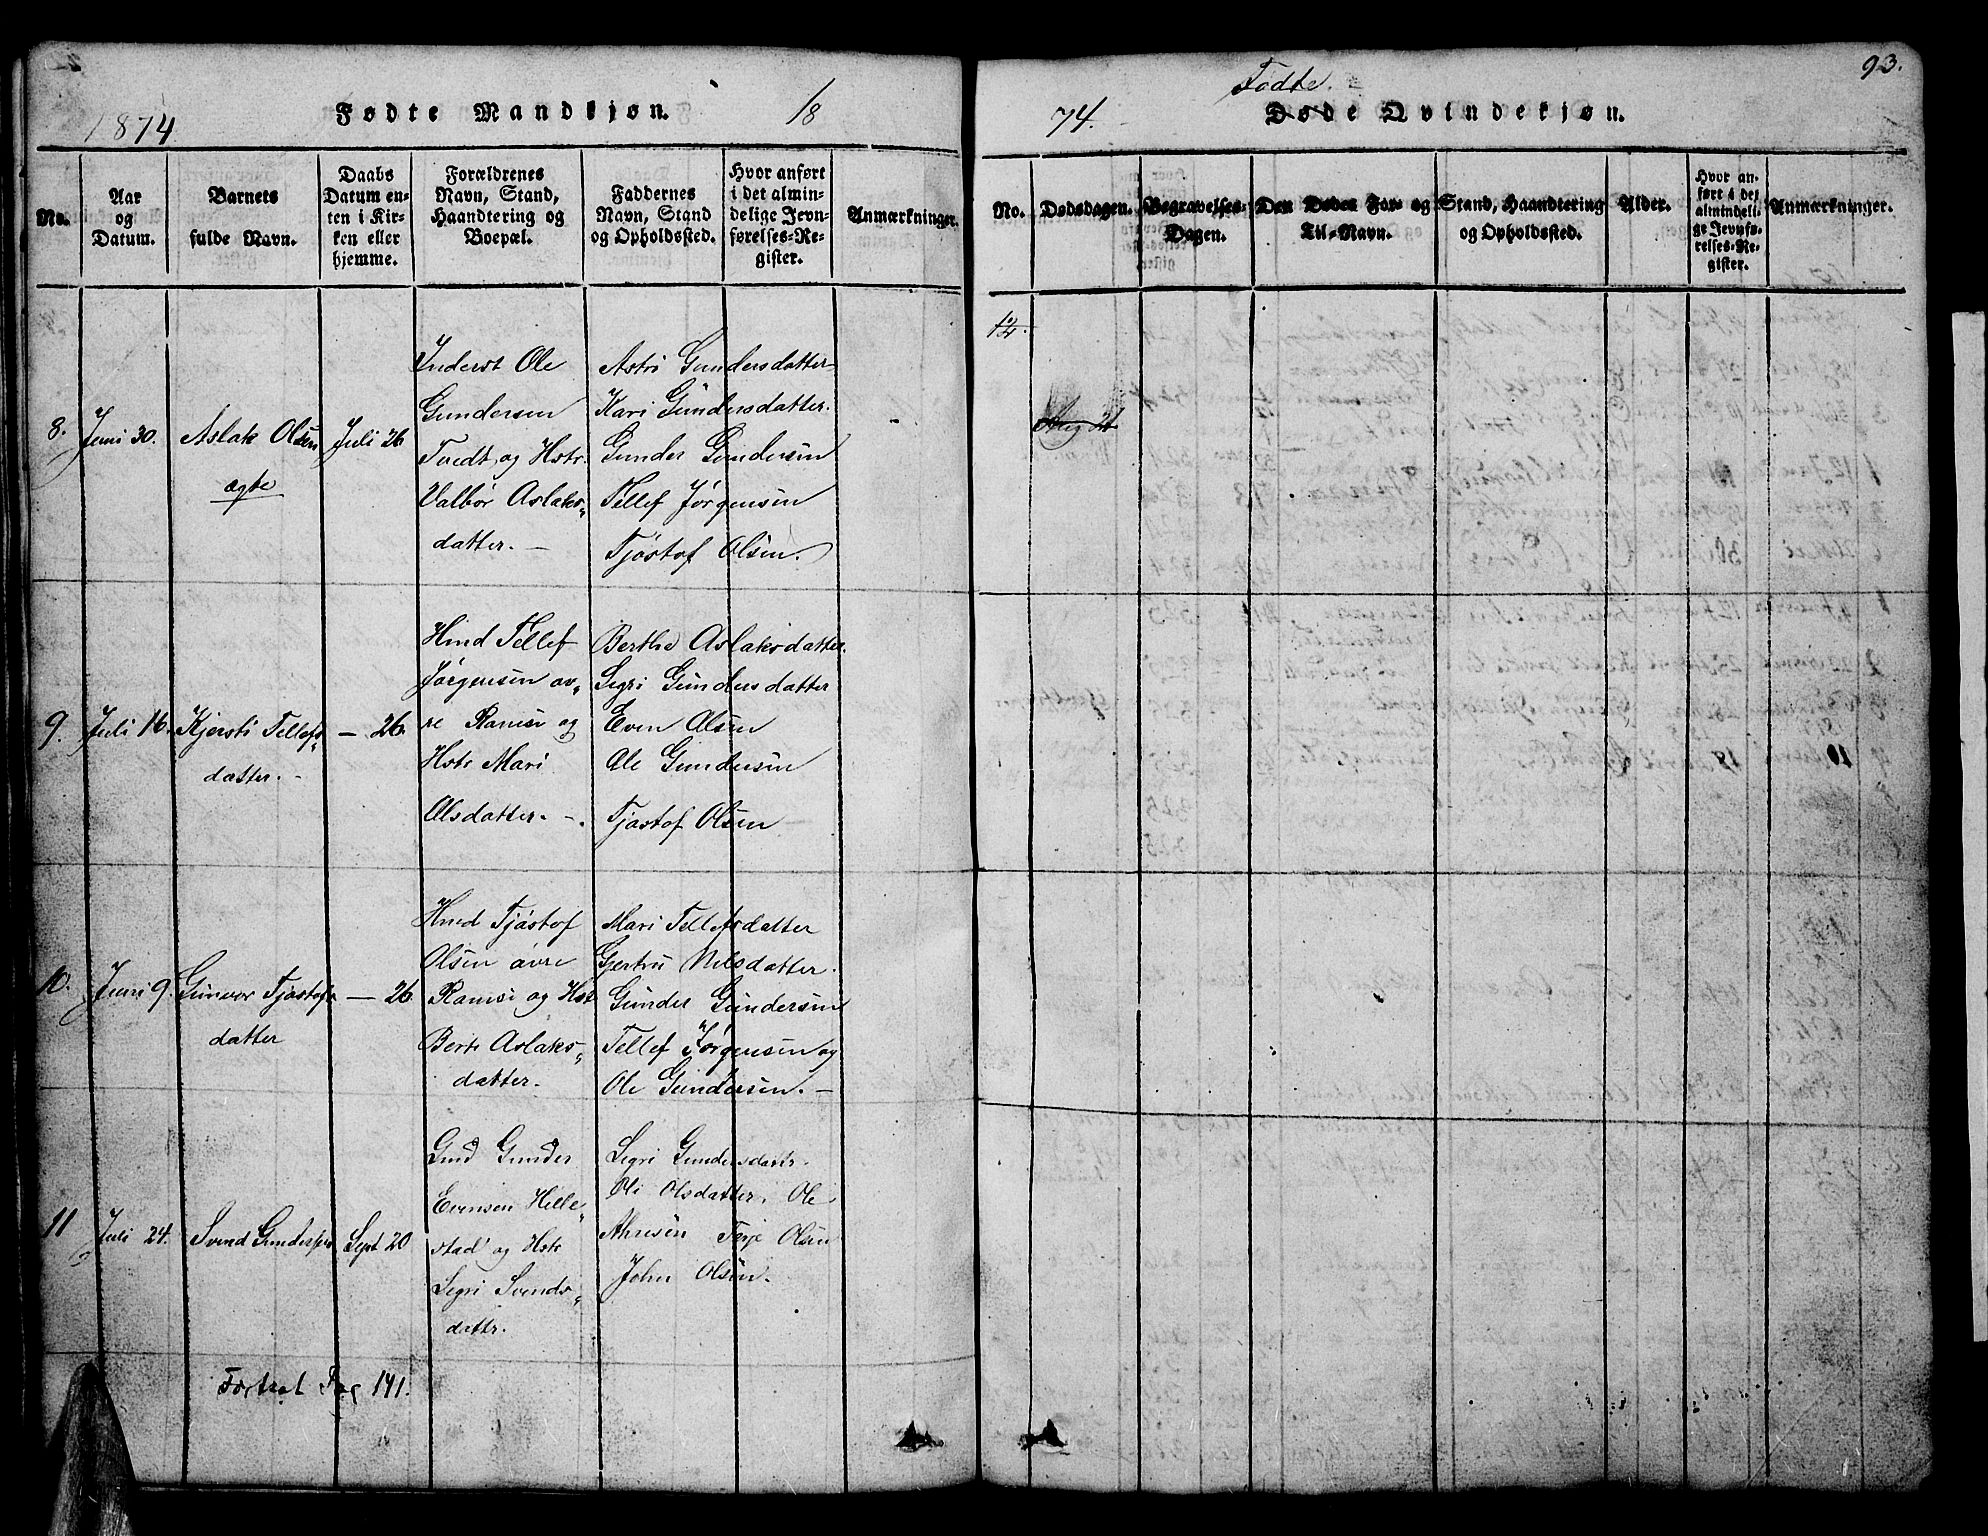 1874
Fødte Mandkjøn.
18
No.
Aar
og
Datum.
Barnets
fulde Navn.
Daabs
Datum en-
ten i Kir-
ken eller
hjemme.
Forældrenes
Navn, Stand,
Haandtering og
Boepæl.
Faddernes
Navn, Stand
og Opholdssted.
Hvor anført
i det almin-
delige Jevn-
førelses-Re-
gister.
Anmærkninger.
8.
Juni 30.
Aslak Olsen
ægte
Juli 26
Inderst Ole
Gundersen
Tvedt og Hstr.
Valbør Aslaks-
datter. —
Astri Gundersdatter
Kari Gundersdatter.
Gunder Gundersen
Tellef Jørgensen
Tjøstof Olsen.
9.
Juli 16.
Kjersti Tellefs-
datter. -
— 26.
Hmd Tellef
Jørgensen øv-
re Ramse og
Hstr Mari
Olsdatter. -.
Berthe Aslaksdatter.
Segri Gundersdatter
Even Olsen
Ole Gundersen
Tjøstof Olsen
10.
Juni 9.
Gunvor Tjøstofs-
datter
— 26.
Hmd Tjøstof
Olsen øvre
Ramse og Hst
Berte Aslaks-
datter.
Mari Tellefsdatter
Gjertru Nilsdatter.
Gunder Gundersen
Tellef Jørgensen og
Ole Gundersen. —
11
Juli 24.
Svend Gundersen
Sept 20
Gmd Gunder
Evensen Hille-
stad og Hstr
Segri Svends-
dattr.
Segri Gundersdattr.
Oli Olsdatter. Ole
Terje Olsen
John Olsen.
Fortsat Pag 141.
93.
74.
Fødte.
Døde Qvindekjøn.
No.
Dødsdagen.
Begravelses-
Dagen.
Den Dødes For- og
Til-Navn.
Stand, Haandtering
og Opholdssted.
Alder.
Hvor an-
ført i det
almindeli-
ge Jevnfø-
relses-Re-
gister.
Anmærkninger.
12.
Aug 21